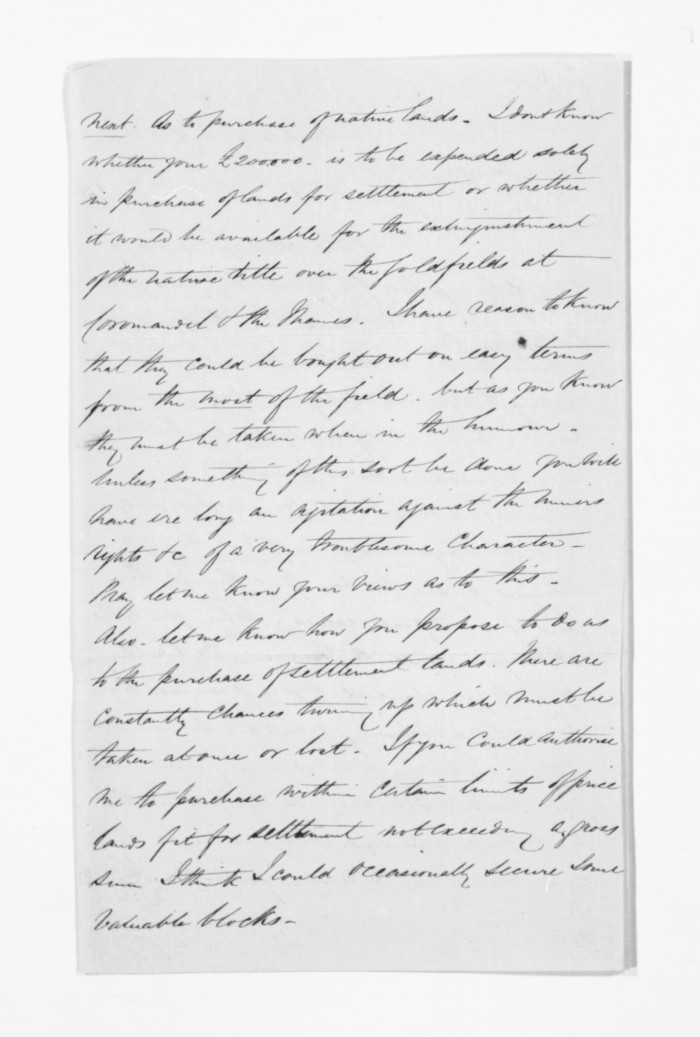 Next. As to purchase of native lands - I dont know
whether your £200.000 - is to be expended solely
in purchase of lands for settlement or whether
it would be available for the extinguishment
of the native title over the Goldfields at
Coromandel & the Thames. I have reason to know
that they could be bought out on easy terms
from the most of the field. but as you know
they must be taken when in the humour -
Unless something of this sort be done you will
have ere long an agitation against the miners
rights &c of a very troublesome character -
Pray let me know your views as to this -
Also - let me know how you propose to do as
to the purchase of settlement lands. There are
constantly chances turning up which must be
taken at once or lost - If you could authorise
me to purchase within certain limits of price
lands fit for settlement not exceeding a gross
sum I think I could occasionally secure some
valuable blocks -